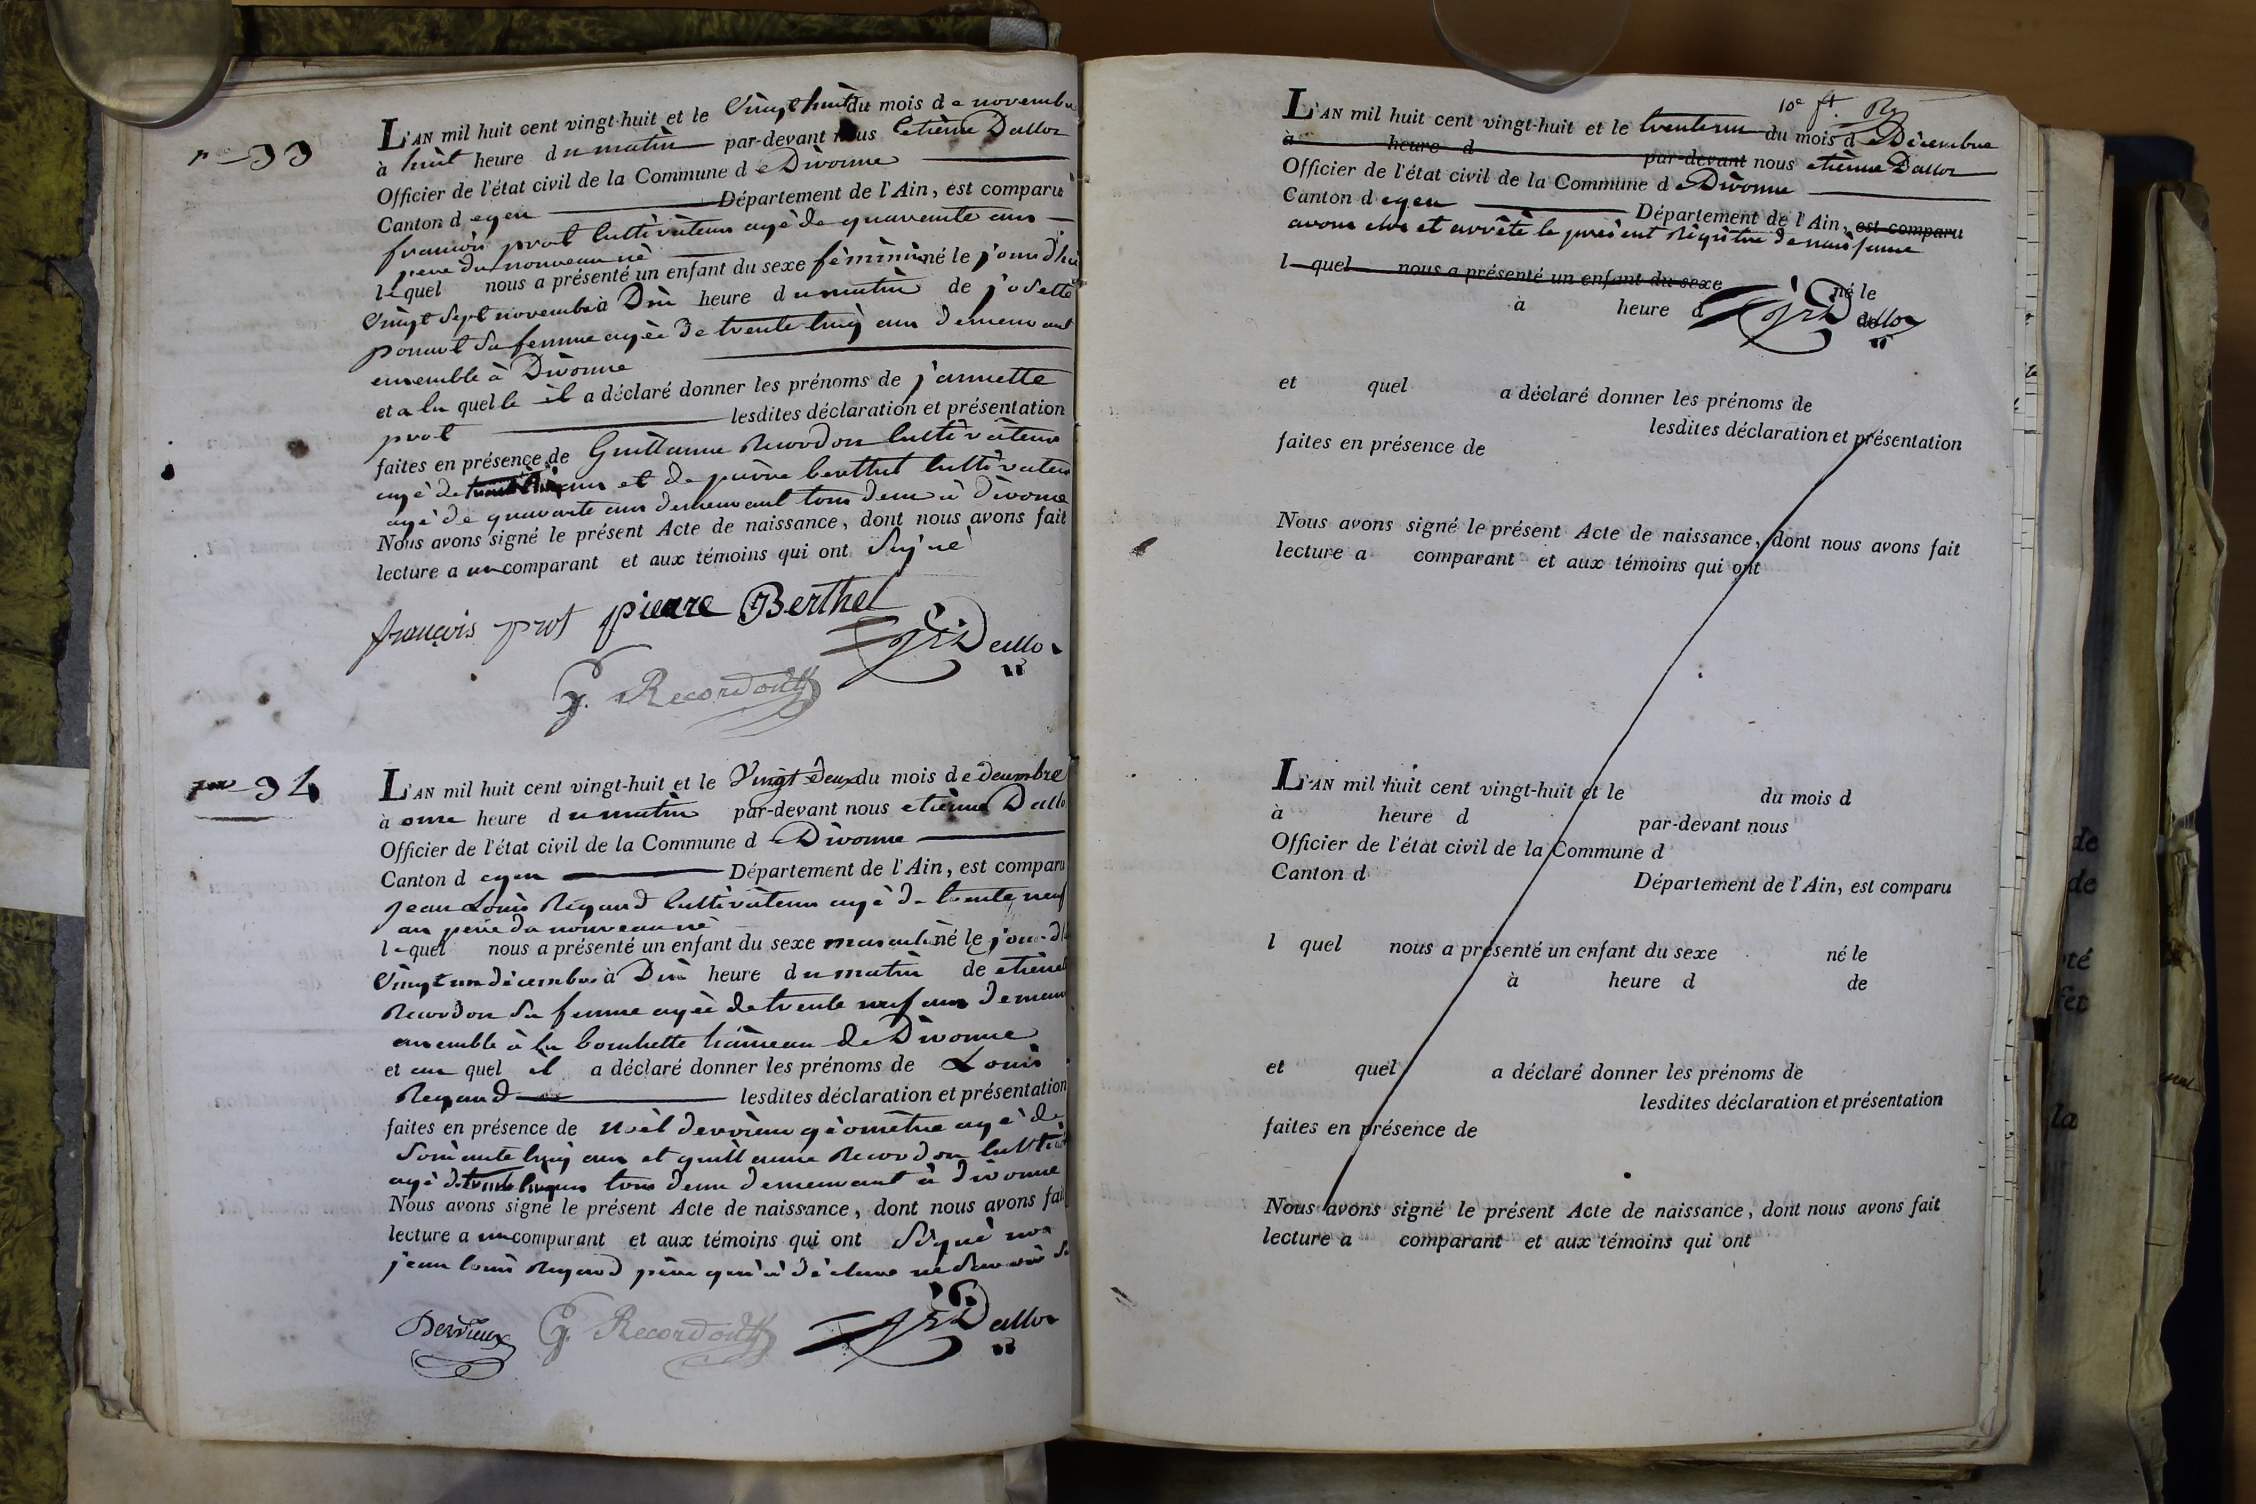 n° 33
L'AN mil huit cent vingt-huit et le Vingt huit du mois de novembre
à huit heure du matin par-devant nous Etienne Dallox
Officier de l'état civil de la Commune de Divonne
Canton de gex Département de l'Ain, est comparu
francois prot Cultivateur agé de quarante ans
pere du nouveau né
lequel nous a présenté un enfant du sexe féminin né le jour d'hier
Vingt Sept novembre à Dix heure du matin de josette
ponard Sa femme agée de trente cinq ans demeurant
ensemble à Divonne
et a la quelle il a déclaré donner les prénoms de jannette
prot lesdites déclaration et présentation
faites en présence de Guillaume Recordon Cultivateur
agé de ans et de pierre berthet Cultivateur
agé de quarante ans demeurant tous deux à divonne
Nous avons signé le présent Acte de naissance, dont nous avons fait
lecture a un comparant et aux témoins qui ont Signé
françois prot pierre Berthet
Dallox
G. Recordon
n° 34
L'AN mil huit cent vingt-huit et le Vingt deux du mois de decembre
à onze heure du matin par-devant nous etienne Dallox
Officier de l'état civil de la Commune de Divonne
Canton de gex Département de l'Ain, est comparu
jean Louis Regaud Cultivateur agé de trente neuf
ans pere du nouveau né
lequel nous a présenté un enfant du sexe masculin né le jour d'hier
Vingt un décembre à Dix heure du matin de etienette
Recordon Sa femme agée de trente neuf ans demeurant
ensemble à la hameau de Divonne
et au quel il a déclaré donner les prénoms de Louis
Regaud lesdites déclaration et présentation
faites en présence de noël dervieux géomètre agé de
Soixante cinq ans et guillaume Recordon Cultivateur
agé de trente cinq ans tous deux demeurant à divonne
Nous avons signé le présent Acte de naissance, dont nous avons fait
lecture a un comparant et aux témoins qui ont Signé non
jean louis Regaud père qui a déclaré ne Savoir
Dervieux G. Recordon Dallox
10e ft.
L'AN mil huit cent vingt-huit et le trente un du mois de Décembre
à heure d par-devant nous etienne Dallox
Officier de l'état civil de la Commune de Divonne
Canton de gex Département de l'Ain, est comparu
avons clos et arrêté le present Régistre de naissance
l quel nous a présenté un enfant du sexe né le
à heure d de
Dallox
et quel a déclaré donner les prénoms de
lesdites déclaration et présentation
faites en présence de
Nous avons signé le présent Acte de naissance, dont nous avons fait
lecture a comparant et aux témoins qui ont
L'AN mil huit cent vingt-huit et le du mois d
à heure d par-devant nous
Officier de l'état civil de la Commune d
Canton d Département de l'Ain, est comparu
l quel nous a présenté un enfant du sexe né le
à heure d de
et quel a déclaré donner les prénoms de
lesdites déclaration et présentation
faites en présence de
Nous avons signé le présent Acte de naissance, dont nous avons fait
lecture a comparant et aux témoins qui ont